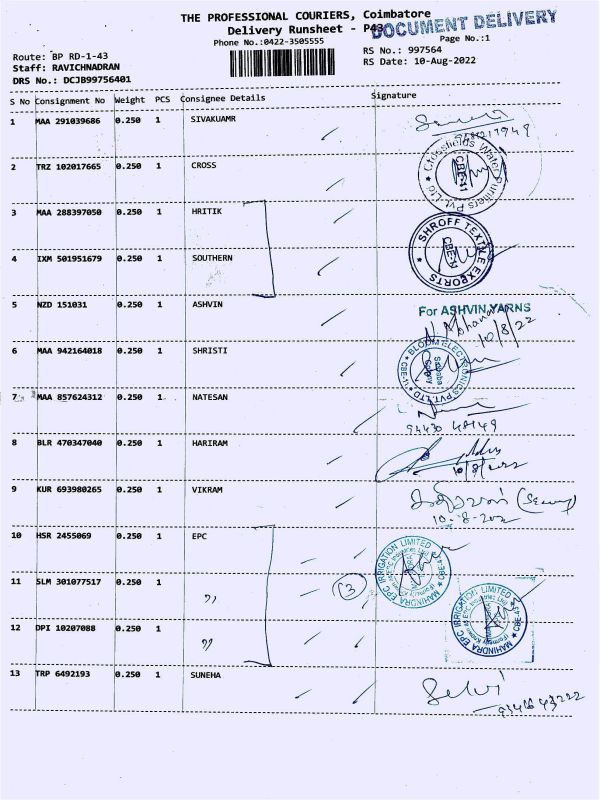 THE PROFESSIONAL COURIERS, Coimbatore
Delivery Runsheet - P43
DOCUMENT DELIVERY
Phone No.:0422-3505555
Page No.:1
Route: BP RD-1-43
RS No.: 997564
Staff: RAVICHNADRAN
RS Date: 10-Aug-2022
DRS No.: DCJB99756401
S No Consignment No Weight PCS Consignee Details Signature
1 MAA 291039686 0.250 1 SIVAKUAMR
2 TRZ 102017665 0.250 1 CROSS
Crossfields Water Purifiers Pvt. Ltd CBE-1
3 MAA 288397050 0.250 1 HRITIK
4 IXM 501951679 0.250 1 SOUTHERN
SHROFF TEXTILE EXPORTS
5 NZD 151031 0.250 1 ASHVIN
For ASHVIN YARNS
10/8/22
6 MAA 942164018 0.250 1 SHRISTI
BLOOM ELECTRONICS PVT. LTD Colony
7 MAA 857624312 0.250 1 NATESAN
94430 48149
8 BLR 470347040 0.250 1 HARIRAM
10/8/2022
9 KUR 693980265 0.250 1 VIKRAM
10-8-202
10 HSR 2455069 0.250 1 EPC
MAHINDRA EPC IRRIGATION LIMITED CBE-43
11 SLM 301077517 0.250 1 ,, (3)
12 DPI 10207088 0.250 1 ,,
MAHINDRA EPC IRRIGATION LIMITED CBE-43
13 TRP 6492193 0.250 1 SUNEHA
Selvi